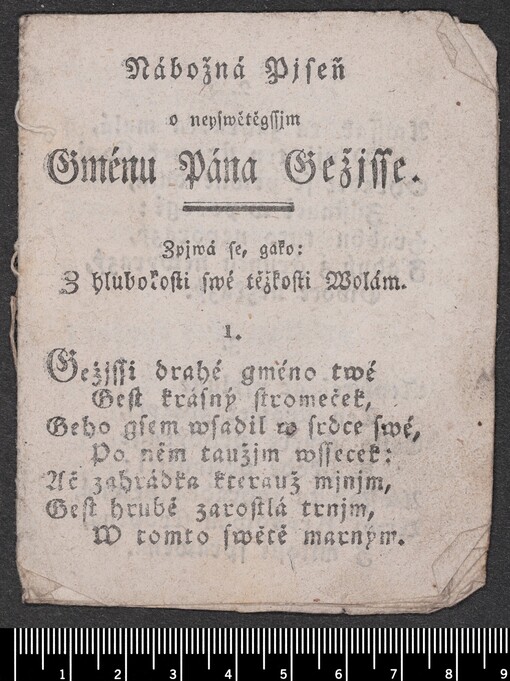 Nábožná Pjseň
o neyswětěgssjm
Gménu Pána Gežjsse.
Zpjwá se, gako:
Z hlubokosti swé těžkosti Wolám.
1.
Gežjssi drahé gméno twé
Gest krásný stromeček,
Geho gsem wsadil w srdce swé,
Po něm taužjm wssecek:
Ač zahrádka kterauž mjnjm,
Gest hrubě zarostlá trnjm,
W tomto swětě marným.
1 2 3 4 5 6 7 8 9